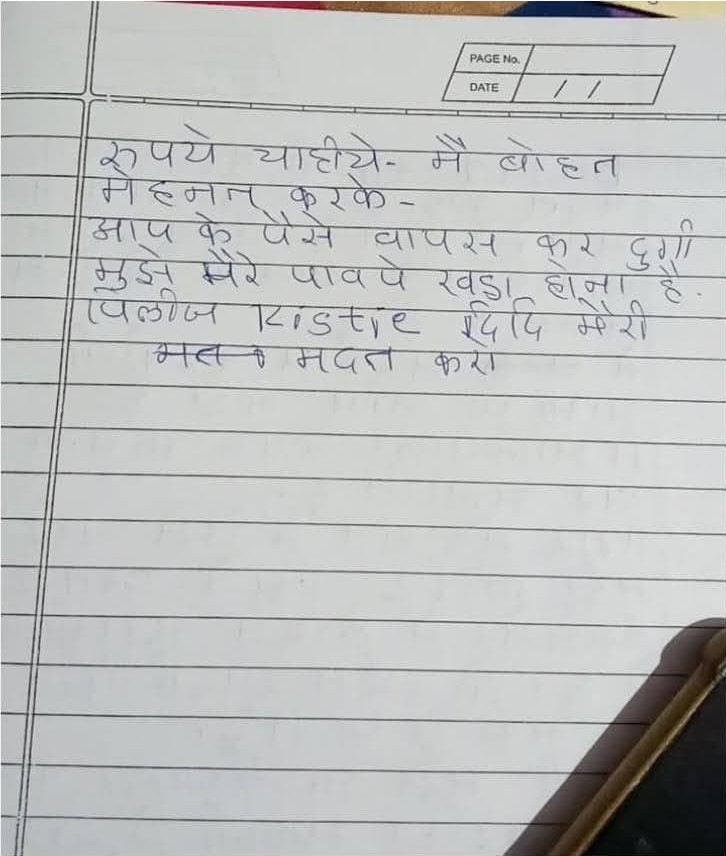 PAGE No.
DATE / /
रुपये चाहीये- मै बोहत
मेहनत करके-
आप के पैसे वापस कर दुगी
मुझे मेरे पावपे खडा होना है.
पिलीज Kistie दिदि मेरी
मदत करो